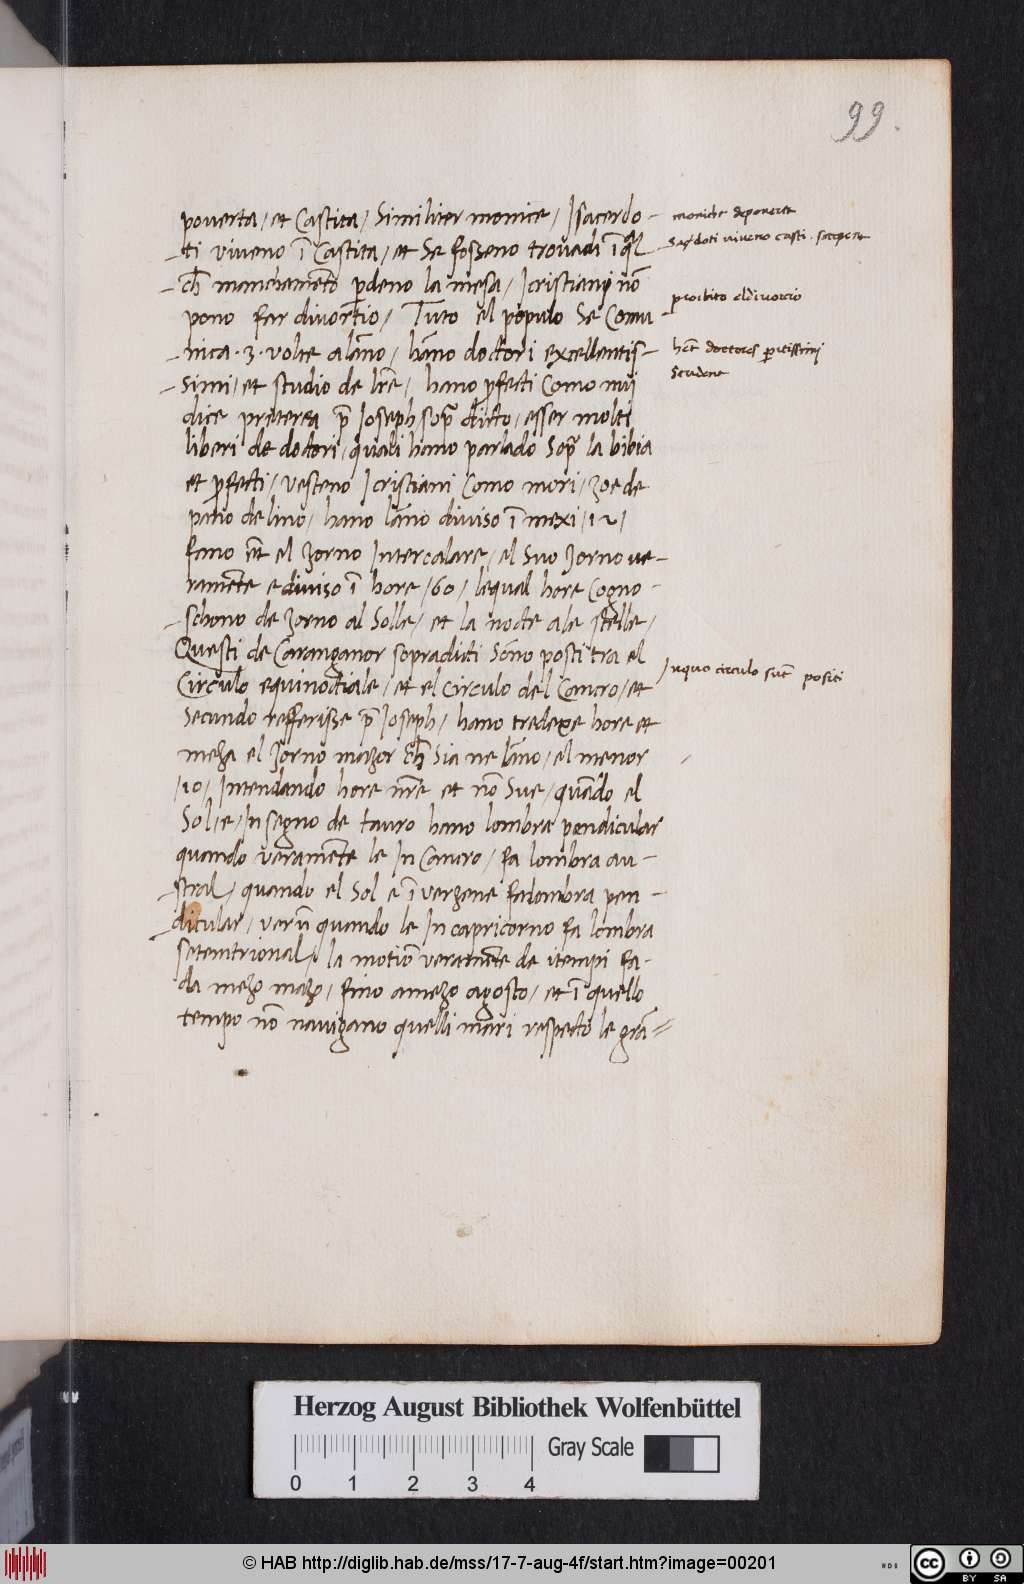 99.
poverta / et Castita / Similiter monice / I sacerdo-
-ti viveno ĩ Castita / et Se fosseno trovadi ĩ q̃l
-ch̃ manchamẽto p̱deno la mesa / I cristiany nõ
pono far divortio / Tuto el populo Se Comu-
-nica · 3 · volte alãno / hãno doctori excellentis-
-simi / et studio de lr̃e / hano p̱fecti Como nui
dice preterea p̃ Ioseph sop̃ dicto / esser molti
liberi de doctori / quali hano parlado Sop̃ la bibia
et p̱fecti / vesteno I cristiani Como mori / zoe de
pano de lino / hano lãno diviso ĩ mexi / 12 /
fano et̃ el Zorno Intercalare / el Suo Zorno ve-
ramẽte e diviso ĩ hore / 60 / lequal hore Cogno-
-schono de Zorno al Solle / et la nocte ale stelle /
Questi de Caranganor sopradicti Sõno posti tra el
Circulo equinoctiale / et el Circulo del Cancro / et
Secundo refferisse p̃ Ioseph / hano tredexe hore et
meza el Zorno mazor ch̃ Sia ne lãno / el menor
/ 10 / Intendando hore nr̃e et nõ Sue / quãdo el
Sol / e / In segno de tauro hano lombra pendicular
quando veramẽte le In Cancro / fa lombra au-
-stral / quando el Sol e ĩ vergene fa lombra pen-
-dicular / verũ quando le In capricorno fa lombra
setemtrional / la motiõ veramẽte de i tempi fa-
da mezo mazo / fino a mezo agosto / et ĩ quello
tempo nõ navigano quelli mari respecto le grã=
moniche
Sac̃doti viveno casti
proibito el divorcio
hẽt doctores p̱itissimi
In quo circulo sũt positi
Herzog August Bibliothek Wolfenbüttel
Gray Scale
0 1 2 3 4
© HAB http://diglib.hab.de/mss/17-7-aug-4f/start.htm?image=00201
cc BY SA